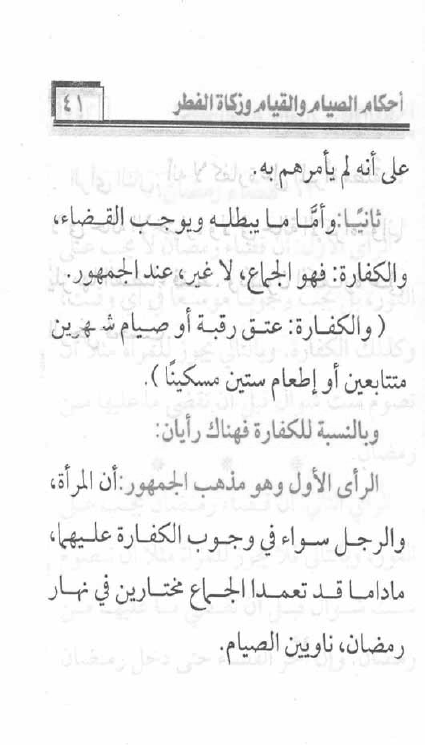 أحكام الصيام والقيام وزكاة الفطر
٤١
على أنه لم يأمرهم به.
ثانيًا:وأمَّا ما يبطله ويوجب القضاء،
والكفارة: فهو الجماع، لا غير، عند الجمهور.
( والكفارة: عتق رقبة أو صيام شهرين
متتابعين أو إطعام ستين مسكينًا ).
وبالنسبة للكفارة فهناك رأيان:
الرأى الأول وهو مذهب الجمهور:أن المرأة،
والرجل سواء في وجوب الكفارة عليهما،
ماداما قد تعمدا الجماع مختارين في نهار
رمضان، ناويين الصيام.